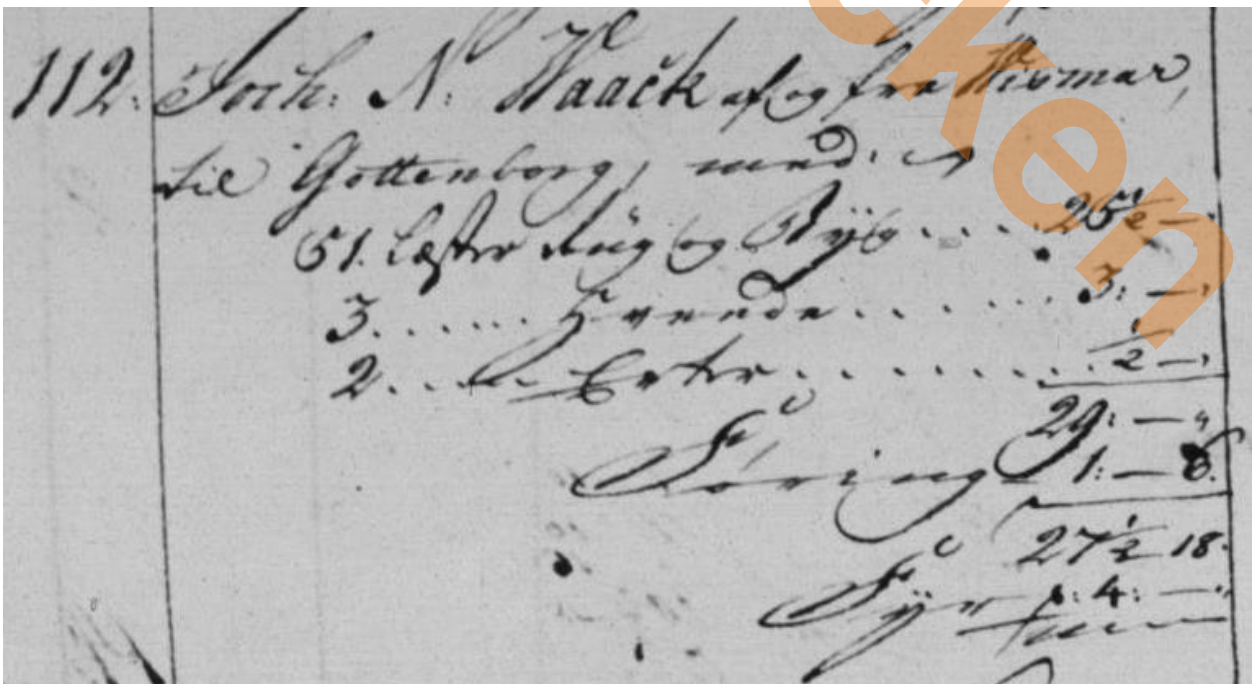 112. Joch: N: Waack af og fra Wismar,
til Gottenborg, med
51. Lester Rüg og Bÿg . . . . 25½ —
3. . . . . . . Hvede . . . . . . . . 3: —
2. . . Erter . . . . . . . . . ½ —
29: — "
Föring 1: — 6.
27½ 18.
Fÿr 4: —